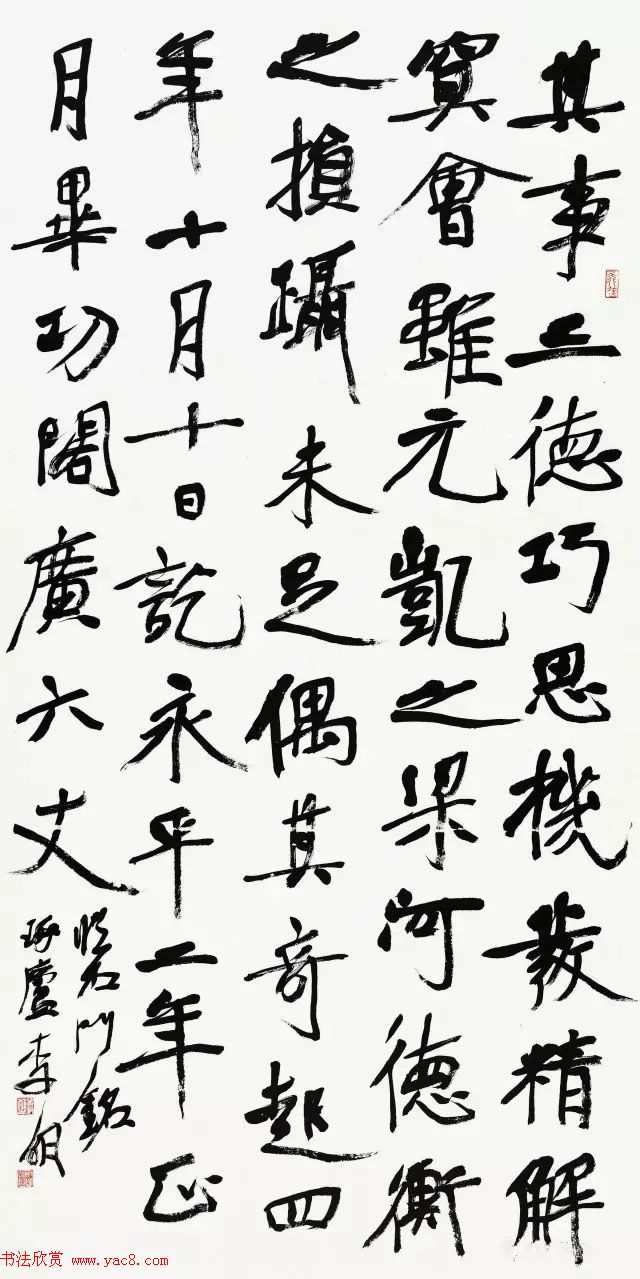 其事三德巧思機發精解
冥會雖元凱之梁河德衡
之損躡未足偶其奇起四
年十月十日訖永平二年正
月畢功閣廣六丈
臨石門銘
琢廬李明
书法欣赏 www.yac8.com